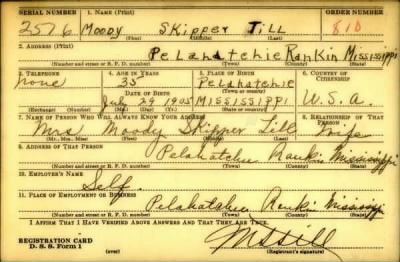 SERIAL NUMBER 1. NAME (Print) ORDER NUMBER
2576 MOODY SKIPPER TILL 810
(First) (Middle) (Last)
2. ADDRESS (Print)
Pelahatchie Rankin Mississippi
(Number and street or R. F. D. number) (Town) (County) (State)
3. TELEPHONE 4. AGE IN YEARS 5. PLACE OF BIRTH 6. COUNTRY OF CITIZENSHIP
none 35 Pelahatchie
DATE OF BIRTH
July 29 1905 MISSISSIPPI U.S.A.
(Exchange) (Number) (Mo.) (Day) (Yr.) (State or country)
7. NAME OF PERSON WHO WILL ALWAYS KNOW YOUR ADDRESS 8. RELATIONSHIP OF THAT PERSON
Mrs Moody Skipper Till Wife
(Mr., Mrs., Miss) (First) (Middle) (Last)
9. ADDRESS OF THAT PERSON
Pelahatchie Rankin Mississippi
(Number and street or R. F. D. number) (Town) (County) (State)
10. EMPLOYER'S NAME
Self.
11. PLACE OF EMPLOYMENT OR BUSINESS
Pelahatchie Rankin Mississippi
(Number and street or R. F. D. number) (Town) (County) (State)
I AFFIRM THAT I HAVE VERIFIED ABOVE ANSWERS AND THAT THEY ARE TRUE.
REGISTRATION CARD
D. S. S. Form 1 (over) M S Till
(Registrant's signature)